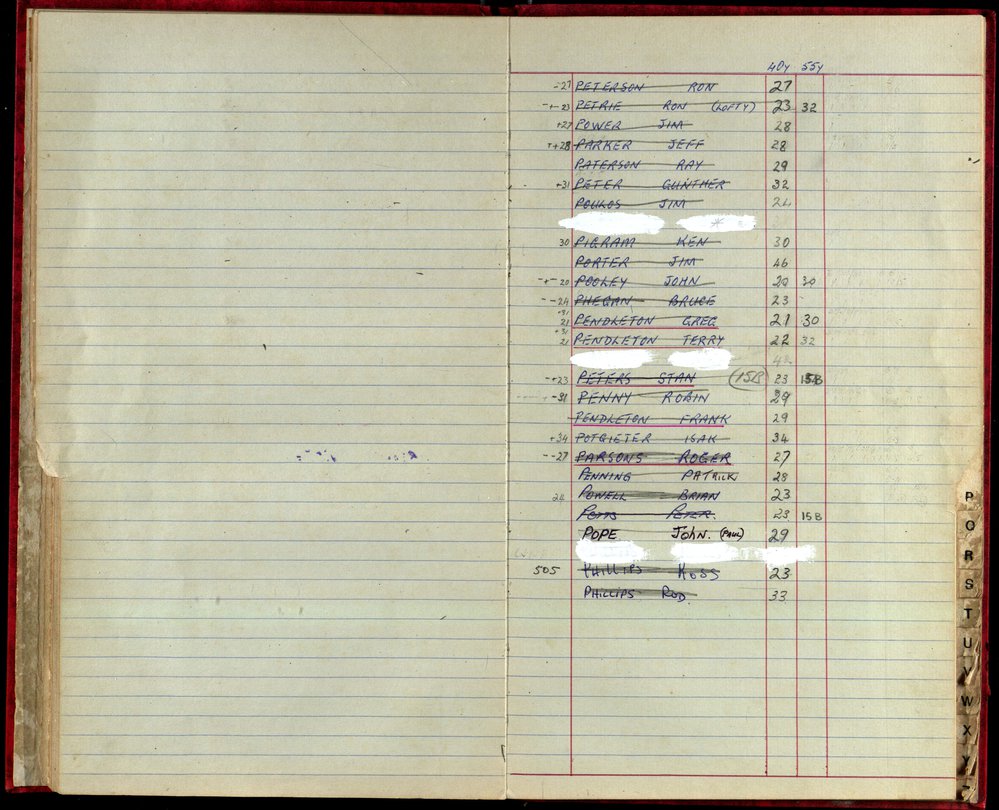 40Y 55Y
-27 PETERSON RON 27
-+-23 PETRIE RON (LOFTY) 23 32
+27 POWER JIM 28
++28 PARKER JEFF 28
PATERSON RAY 29
+31 PETER GUNTHER 32
POULOS JIM 24
*
30 PIGRAM KEN 30
PORTER JIM 46
-+-20 POOLEY JOHN 20 30
--24 PHEGAN BRUCE 23
+31 21 PENDLETON GREG 21 30
+31 21 PENDLETON TERRY 22 32
-+23 PETERS STAN (15B) 23 15B
-31 PENNY ROBIN 29
PENDLETON FRANK 29
+34 POTGIETER ISAK 34
--27 PARSONS ROGER 27
PENNING PATRICK 28
24 POWELL BRIAN 23
POTTS PETER. 23 15B
POPE JOHN. (PAUL) 29
505 PHILLIPS ROSS 23
PHILLIPS ROD 33
P
Q
R
S
T
U
V
W
X
Y
Z